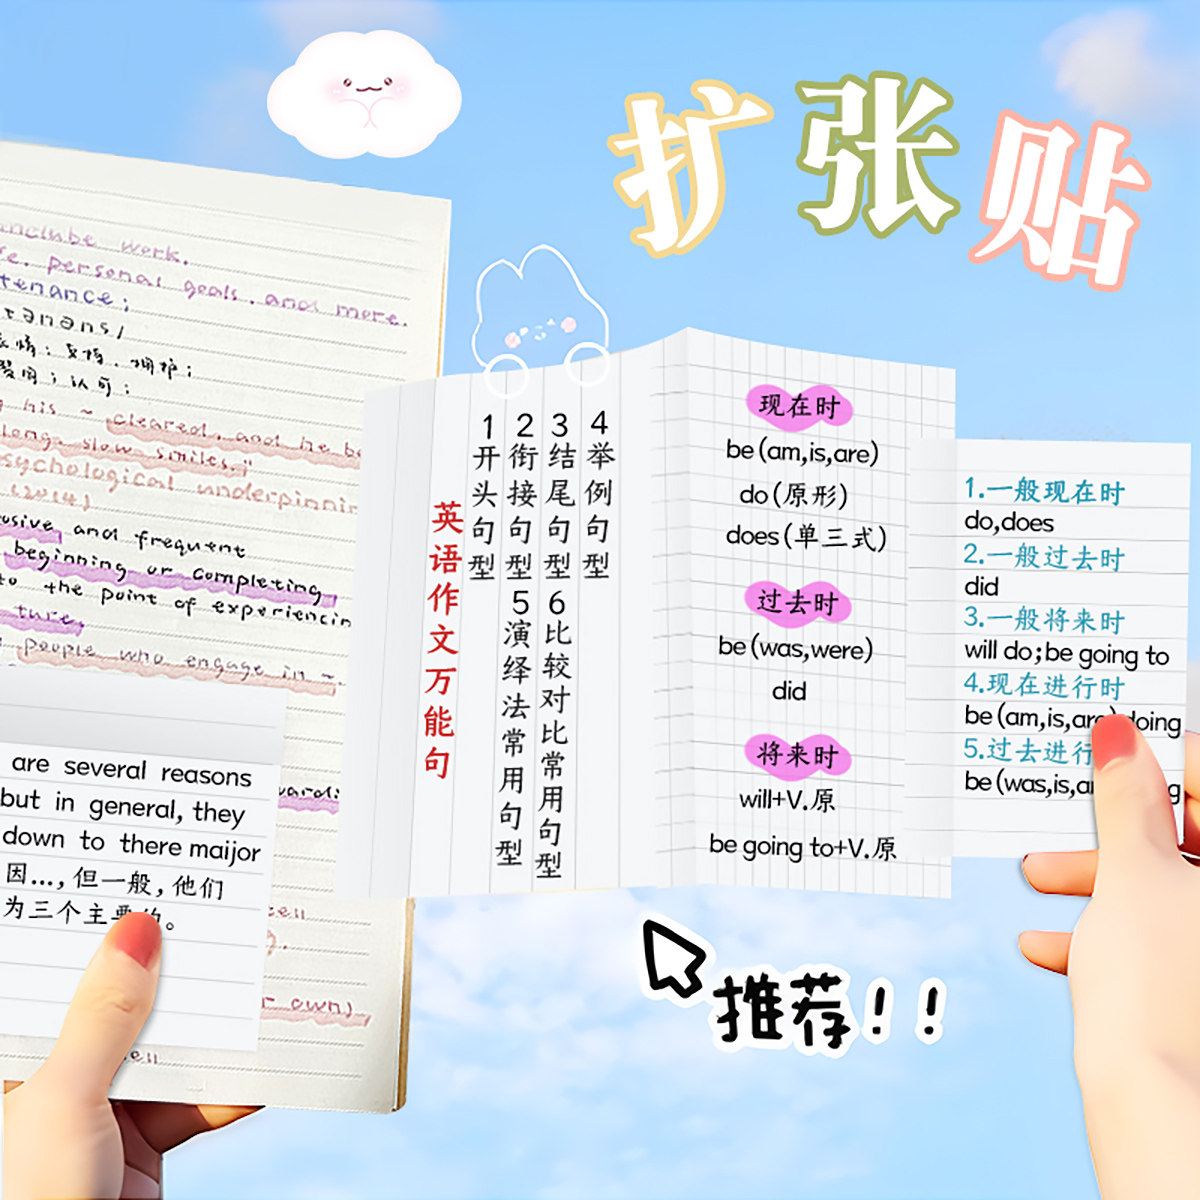 扩张贴
nclube work.
personal goals, and more.
tenance;
支持、拥护;
认可;
his ~ cleared, and he be
long, slow smiles,"
sychological underpinnin
(2014)
usive and frequent
beginning or completing
to the point of experiencin
ture.
people who engage in ~
are several reasons
but in general, they
down to there maijor
因...,但一般,他们
为三个主要的。
own)
英语作文万能句
1开头句型
2衔接句型
3结尾句型
4举例句型
5演绎法常用句型
6比较对比常用句型
现在时
be(am,is,are)
do(原形)
does(单三式)
过去时
be(was,were)
did
将来时
will+V.原
be going to+V.原
1.一般现在时
do,does
2.一般过去时
did
3.一般将来时
will do;be going to
4.现在进行时
be(am,is,are)doing
5.过去进行
be(was,is,ar
推荐!!